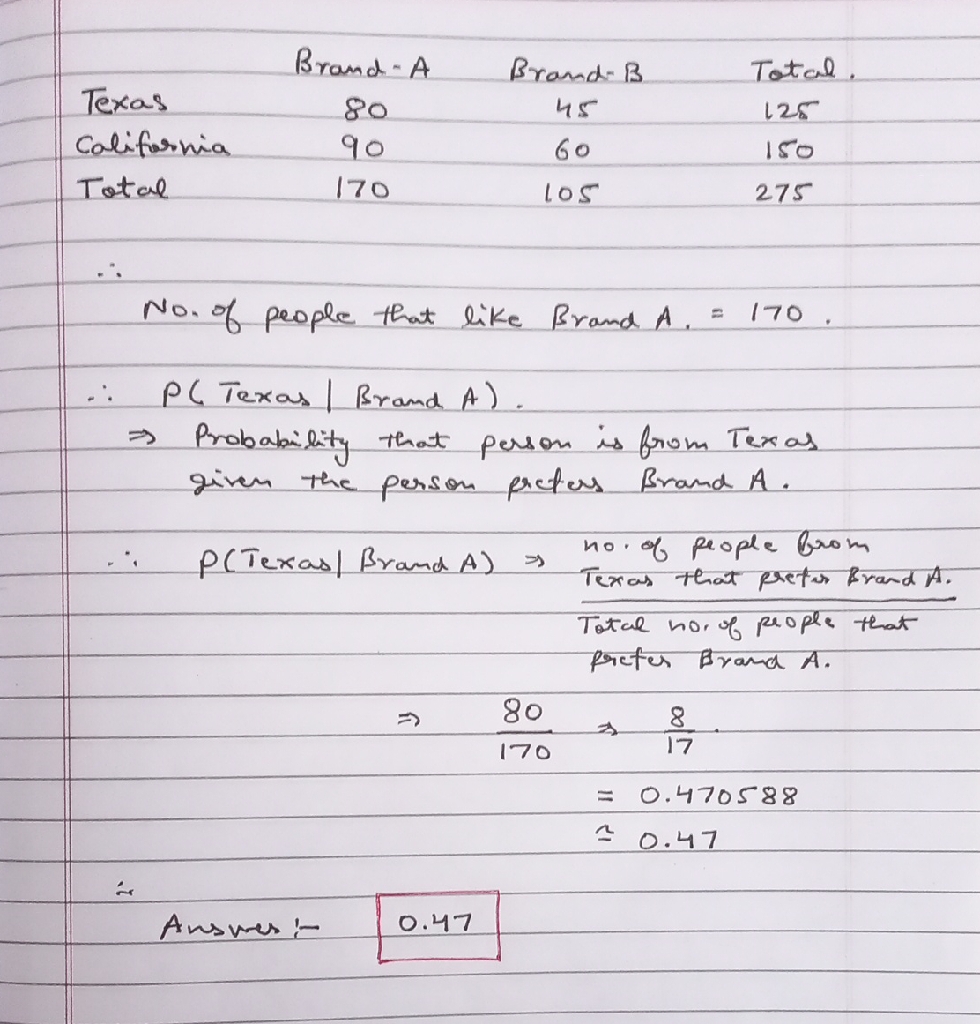 Brand-A Brand-B Total.
Texas 80 45 125
California 90 60 150
Total 170 105 275
∴
No. of people that like Brand A. = 170.
∴ P( Texas | Brand A).
⇒ Probability that person is from Texas
given the person prefers Brand A.
∴ P(Texas | Brand A) ⇒ no. of people from
Texas that prefer Brand A.
Total no. of people that
prefer Brand A.
⇒ 80/170 ⇒ 8/17.
= 0.470588
≃ 0.47
∴
Answer :- 0.47